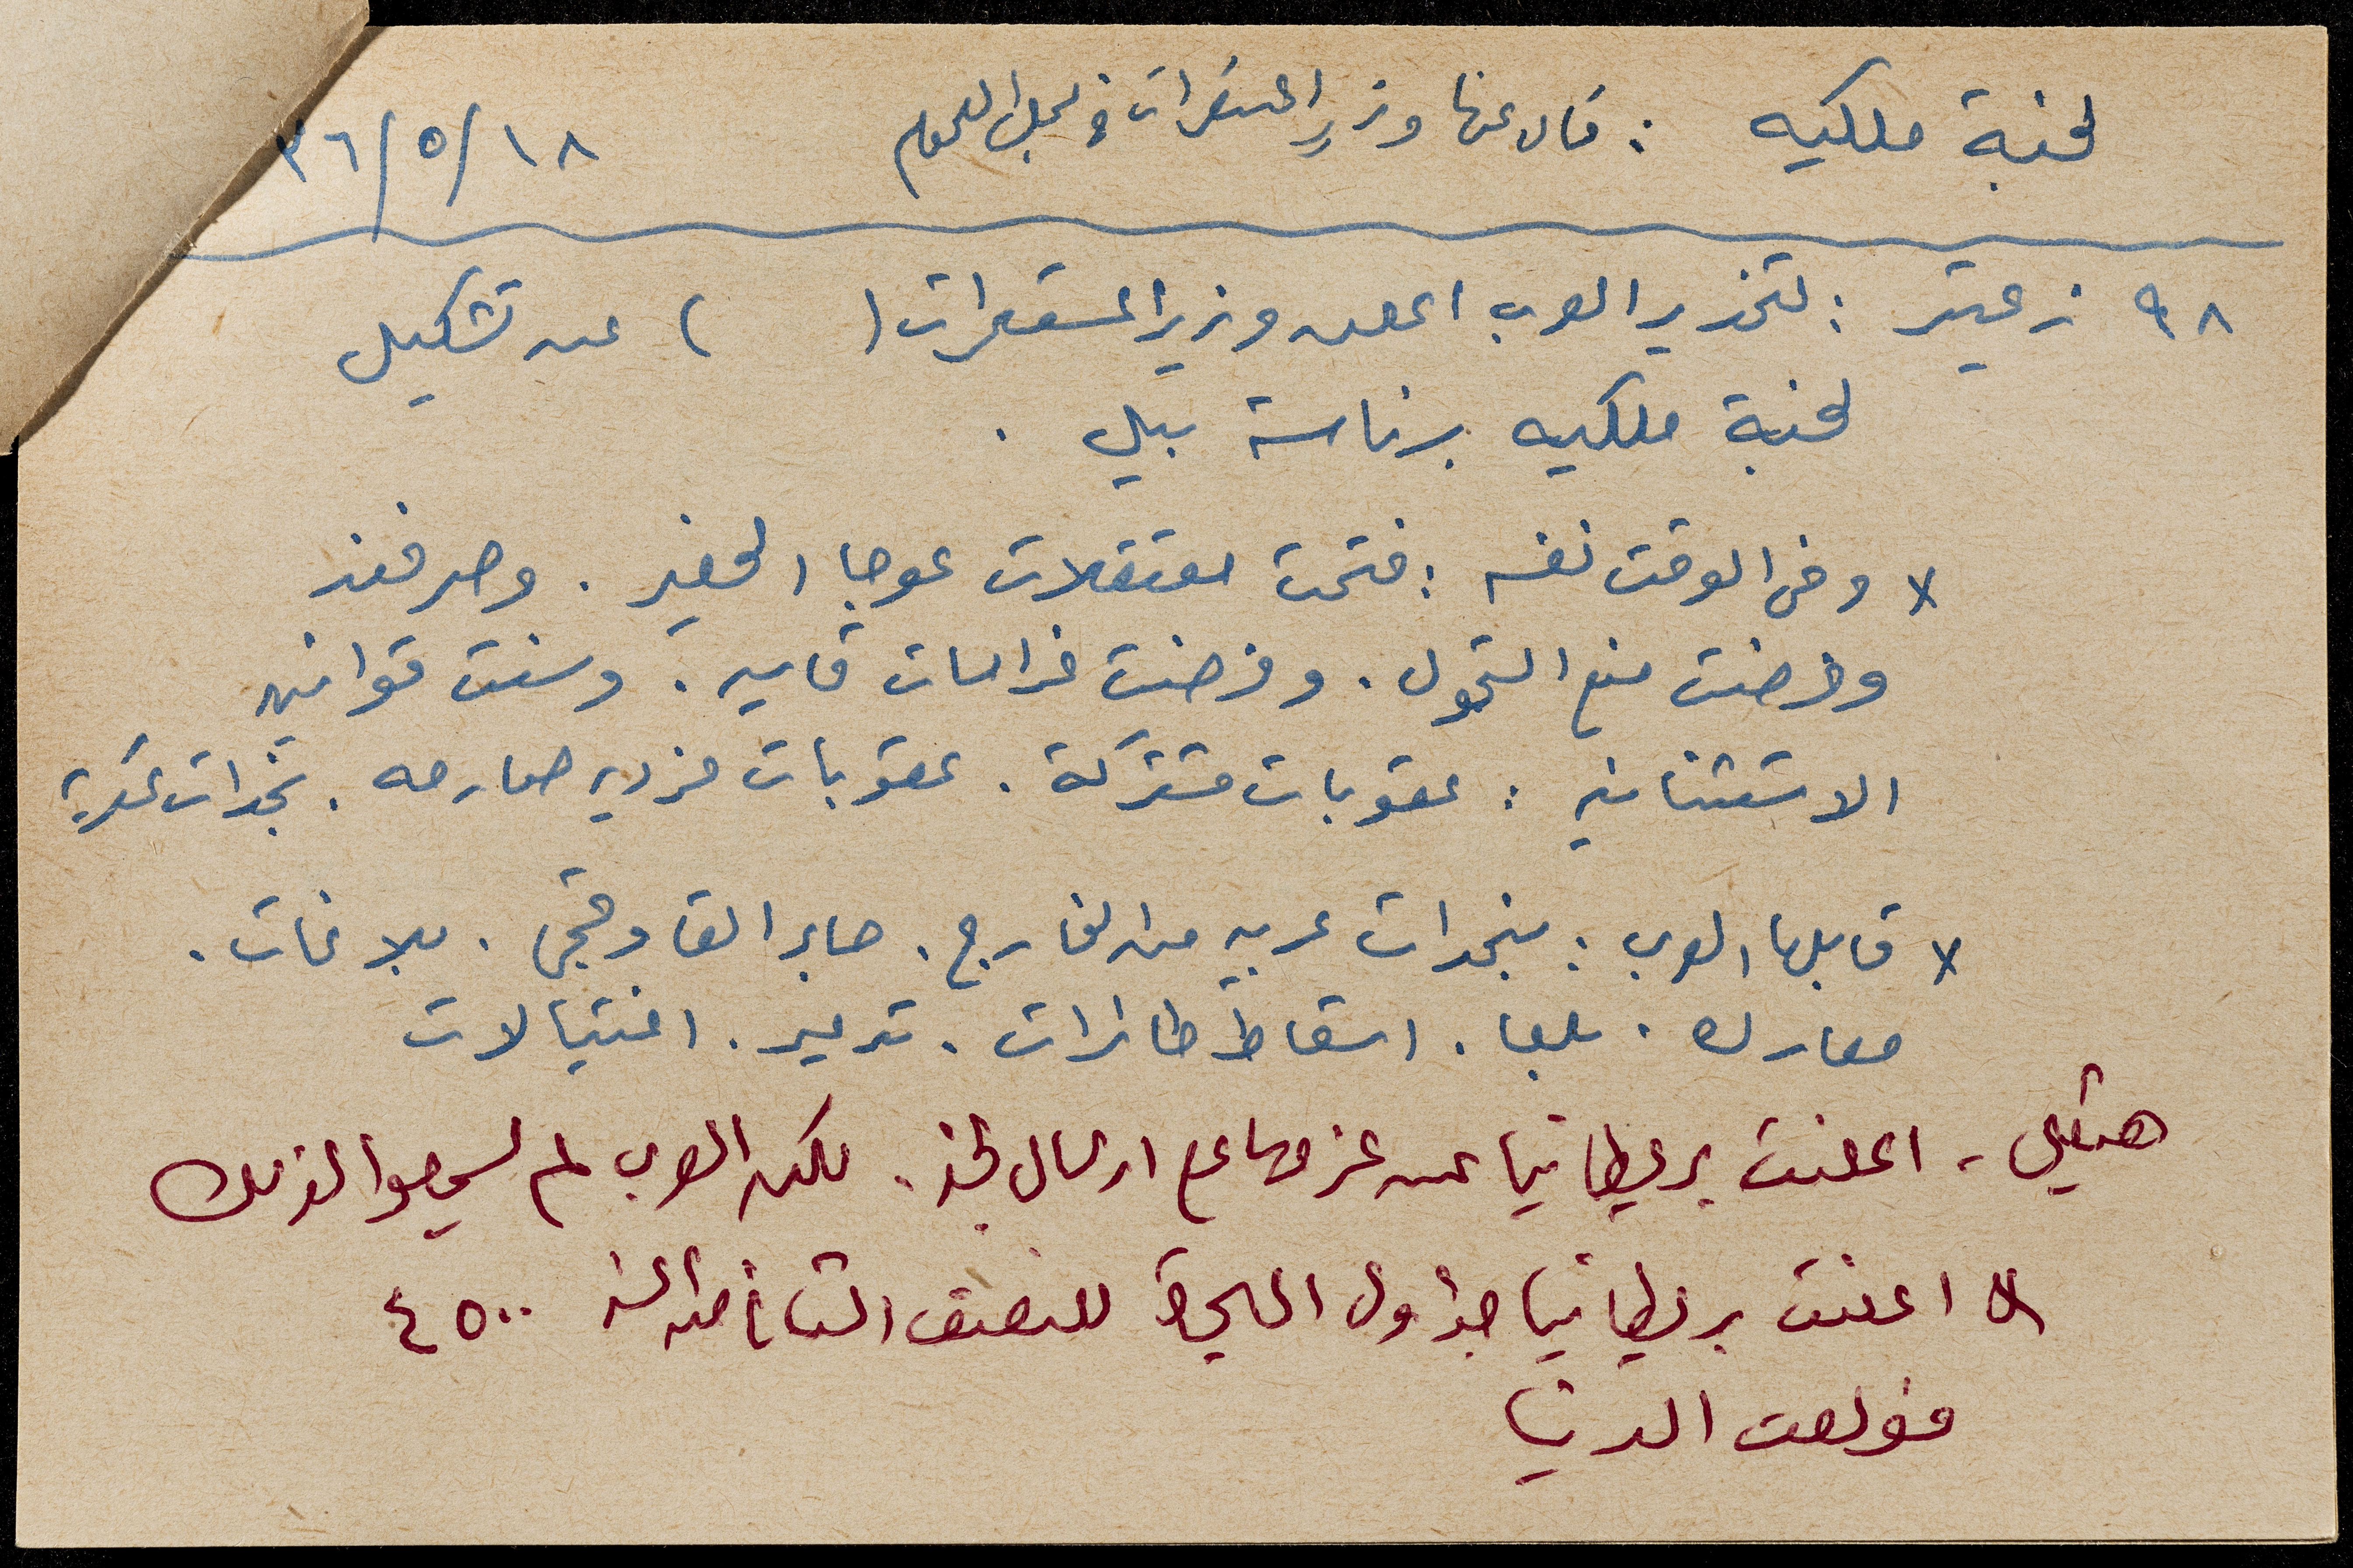 لجنة ملكيه : قال عنها وزير المستعمرات في مجلس العموم ٣٦/٥/١٨
٩٨ زعيتر : لتخدير العرب اعلن وزير المستعمرات ( ) عن تشكيل
لجنة ملكيه برئاسة بيل .
× وفي الوقت نفسه : فتحت معتقلات عوجا الحفير . وصرفند
وفرضت منع التجول . وفرضت غرامات قاسيه . وسنت قوانين
الاستثنائيه : عقوبات مشتركة . عقوبات فرديه صارمه . نجدات عسكرية
× قابلها العرب : بنجدات عربيه من الخارج . القاوقجي . بلاغات .
معارك . بلعا . اسقاط طائرات . تدمير . اغتيالات
اعلنت بريطانيا عن عزمها على ارسال لجنة . لكن العرب لم لذلك
× اعلنت بريطانيا جداول الهجرة للنصف الثاني من السنه ٤٥٠٠
فولعت الدنيا